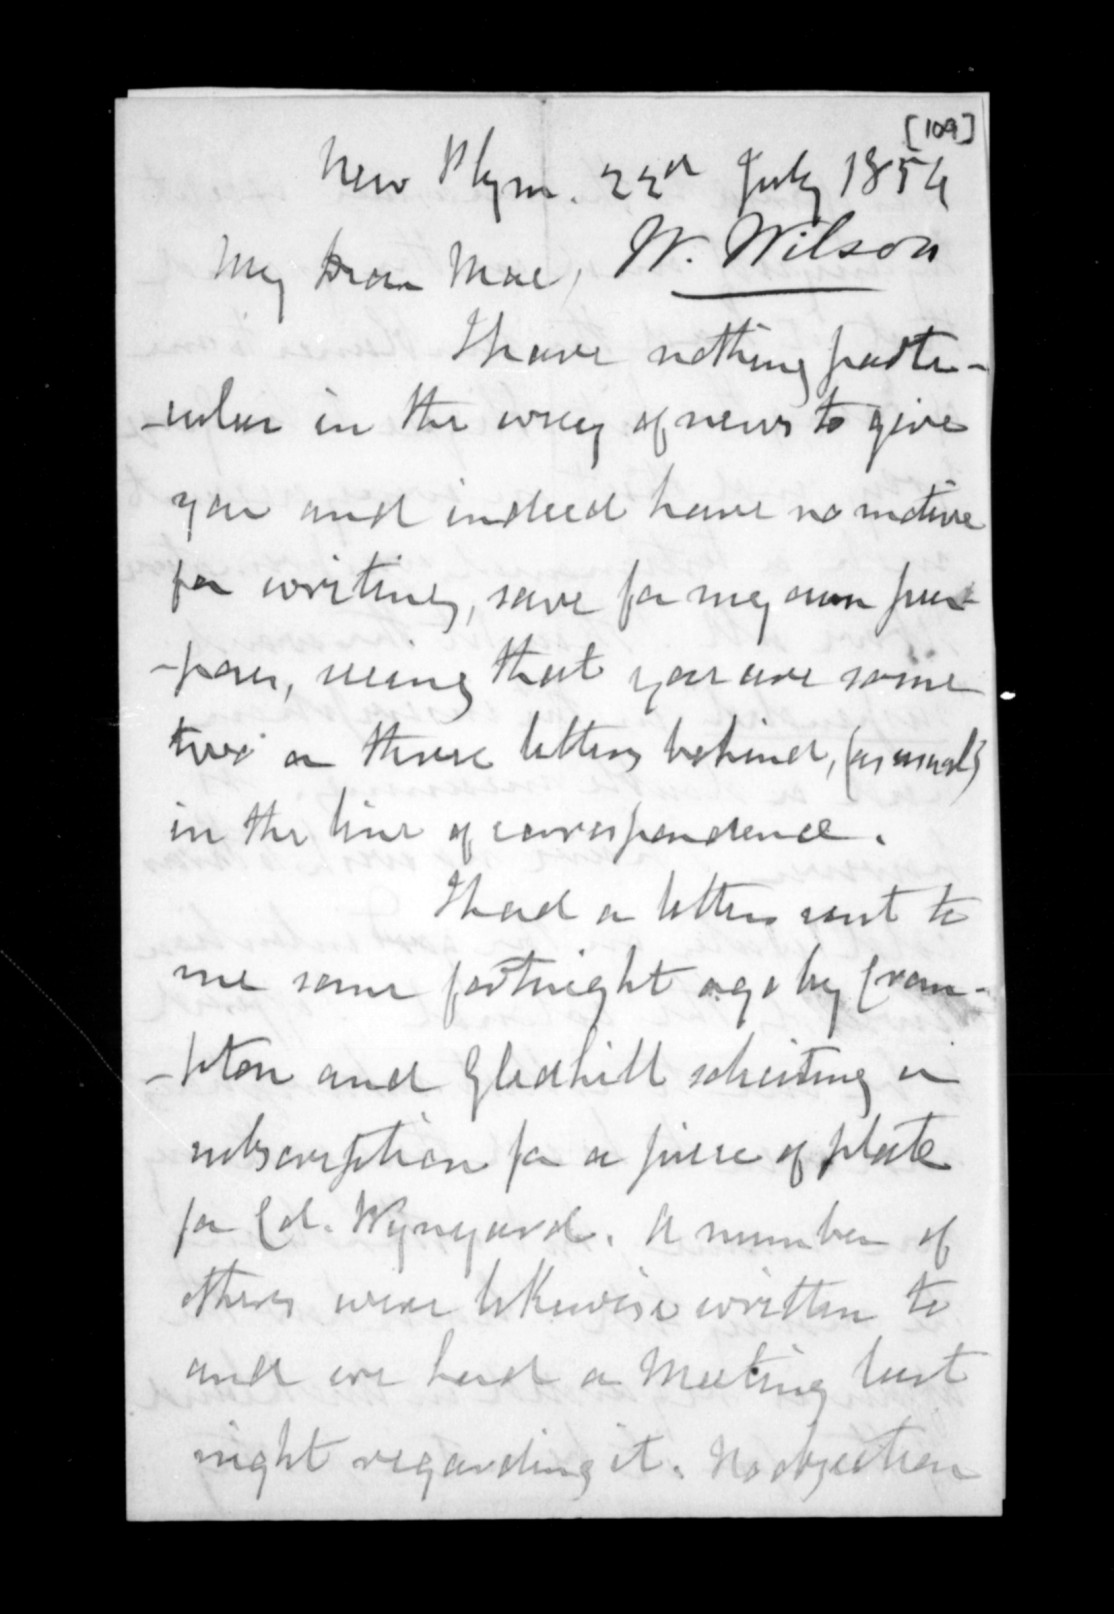 [109]
New Plym. 22nd July 1854
W. Wilson
My Dear Mac,
I have nothing parti-
-cular in the way of news to give
you and indeed have no motive
for writing, save for my own pur-
-poses, seeing that you are some
two or three letters behind, (as usual)
in the line of correspondence.
I had a letter sent to
me some fortnight ago by Cram-
-pton and Gledhill soliciting a
subscription for a piece of plate
for Col. Wynyard. A number of
others were likewise written to
and we had a Meeting last
night regarding it. No objection